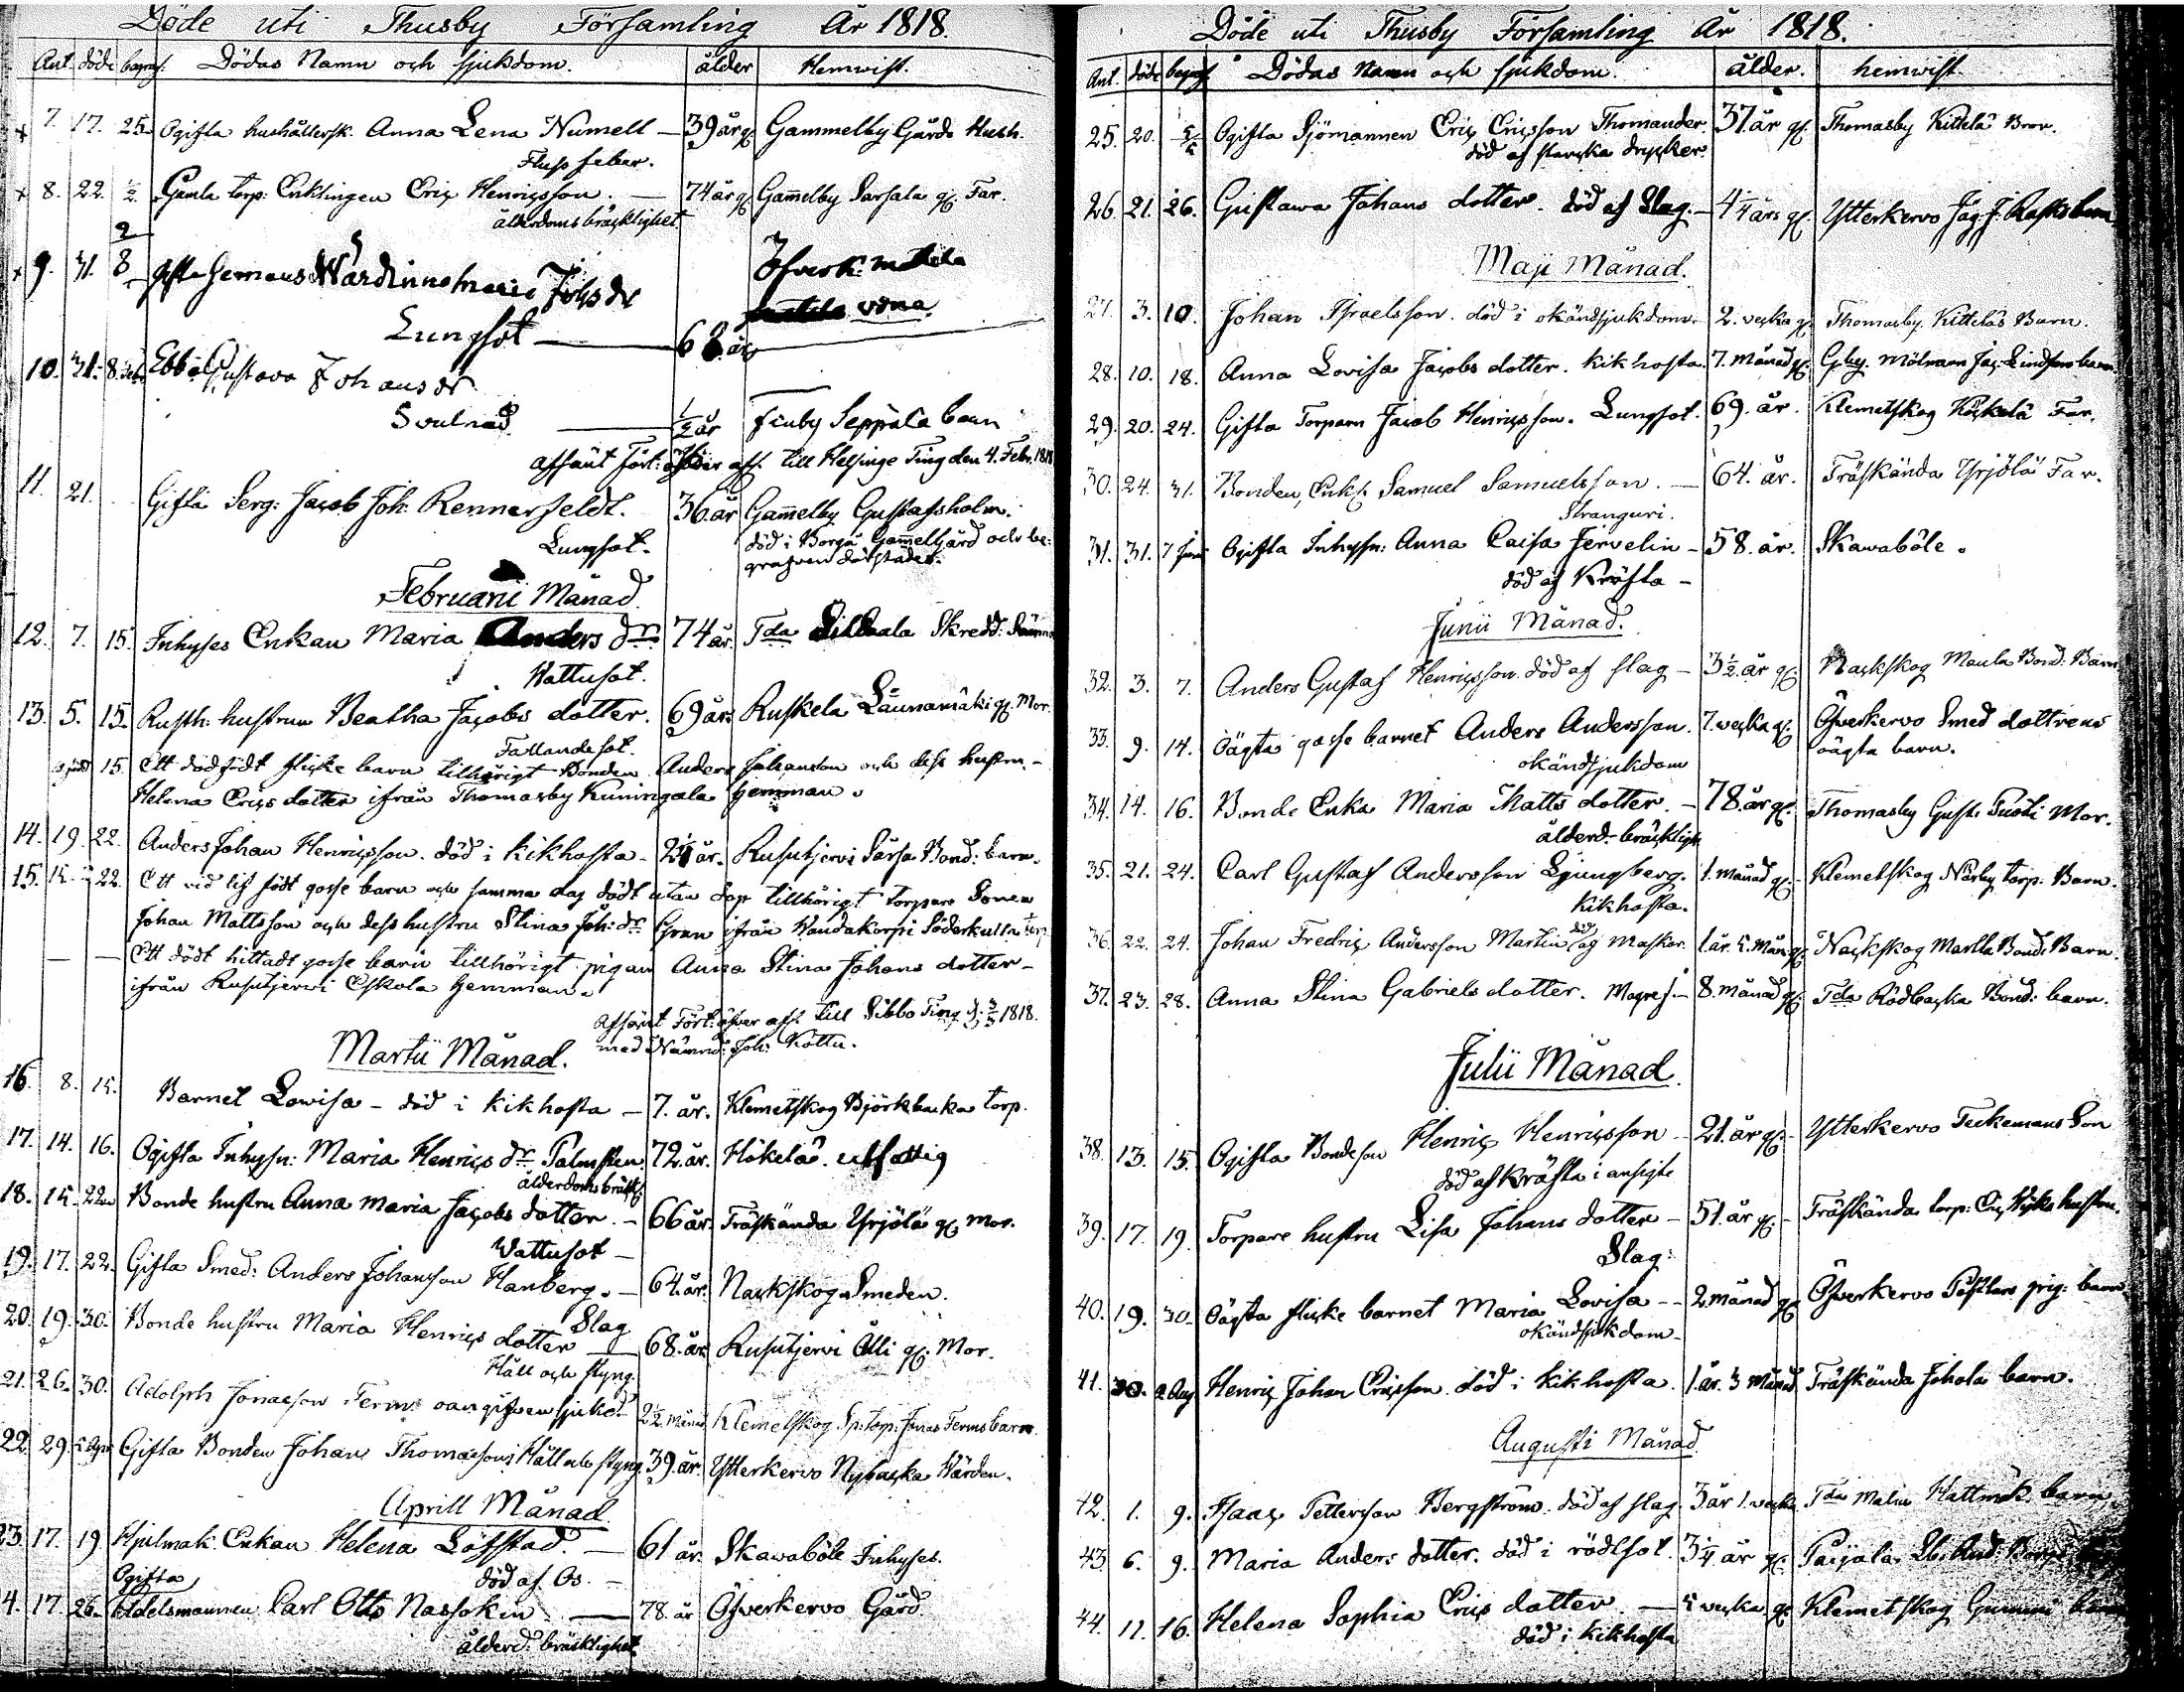 Döde uti Thusby Församling År 1818.
Ant. döde begraf. Dödas Namn och sjukdom. ålder Hemwist.
7. 17. 25. Ogifta hushållersk. Anna Lena Numell — 39 år Gammelby Gårds Hush.
Fluss feber.
8. 22. ½. Gamla torp: Enklingen Eric Henricsson. — 74 år Gam̄elby Sarsala Far.
ålderdoms bräcklighet
9. 31. 8 Gifta Hemans Wärdinna Maria Johs dr
Lungsot — 68 år
10. 31. 8 Feb Ebba Gustava Johans dr
Svulnad — ½ år Finby Seppälä barn
afsänt Fört: öfver afl. till Helsinge Ting den 4. Febr. 1818
11. 21. Gifta Serg: Jacob Joh: Rennerfeldt. 36 år Gam̄elby Gustafsholm.
Lungsot. död i Borgå Gam̄elgård och be-
grafven därstädes.
Februarii Månad.
12. 7. 15. Inhyses Enkan Maria Anders dr 74 år. Tda Skredd:
Wattusot.
13. 5. 15. Rusth: hustrun Beatha Jacobs dotter. 69 år. Ruskela Laúnamäki Mor.
Fallandesot.
15. Ett dödfödt flicke barn tillhörigt Bonden Anders Johansson och dess hustru
Helena Erics dotter ifrån Thomasby Kuningala hemman.
14. 19. 22. Anders Johan Henricsson. död i kikhosta — 2¼ år. Rusutjervi Sarsa Bond: barn.
15. 15. 22. Ett vid lif födt gosse barn och samma dag dödt utan dop tillhörigt torpare Sonen
Johan Mattsson och dess hustru Stina Joh: dr Gran ifrån Wandakorpi Söderkulla torp.
— — Ett dödt hittadt gosse barn tillhörigt pigan Anna Stina Johans dotter —
ifrån Rusutjerwi Eskola hemman.
afsänt Fört: öfver afl. till Sibbo Ting d: 3/3 1818.
med Nämnd: Joh: Kottu.
Martii Månad.
16. 8. 15. Barnet Lowisa — död i kikhosta — 7. år. Klemetskog Björkbacka torp.
17. 14. 16. Ogifta Inhysn: Maria Henrics dr Palmsten 72. år. Hökelä. utfattig
ålderdoms bräckl:
18. 15. 22. Bonde hustru Anna Maria Jacobs dotter. — 66 år. Träskända Yrjölä Mor.
Wattusot —
19. 17. 22. Gifta Smed: Anders Johansson Hanberg. — 64. år. Nackskog Smeden.
Slag
20. 19. 30. Bonde hustru Maria Henrics dotter — 68. år. Rusutjervi Olli Mor.
Håll och styng.
21. 26. 30. Adolph Jonasson Ferm. oangifven sjukd. 2½ månad Klemetskog Sp: torp: Jonas Ferms barn.
22. 29. 5 Apr. Gifta Bonden Johan Thomasson Håll och styng. 39. år. Ytterkervo Nybacka Wärden.
Aprill Månad.
23. 17. 19 Hjulmak. Enkan Helena Löfstad. — 61 år. Skawaböle Inhyses.
död af Os. —
Ogifta
4. 17. 26. Adelsmannen Carl Otto Nassokin — 78. år Öfverkervo Gård
ålderd: bräcklighet
Döde uti Thusby Församling År 1818.
Ant. döde begraf Dödas Namn och sjukdom. ålder. hemwist.
25. 20. Ogifta Sjömannen Eric Ericsson Thomander. 37. år Thomasby Kittelä Bror.
död af starcka drycker.
26. 21. 26. Gustawa Johans dotter. död af Slag. — 4¼ års Ytterkervo
Maji Månad.
27. 3. 10. Johan Israelsson. död i okänd sjukdom. — 2. vecka Thomasby Kitteläs Barn.
28. 10. 18. Anna Lovisa Jacobs dotter. kikhosta. 7. månad Gby. Mölnarn Jac: Lindfors barn.
29. 20. 24. Gifta Torparn Jacob Henricsson. Lungsot. 69. år. Klemetskog Käckelä Far.
30. 24. 31. Bonden, Enkl: Samuel Samuelsson. — 64. år. Träskända Yrjölä Far.
Stranguri.
31. 31. 7 Juni Ogifta Inhysn: Anna Caisa Jervelin — 58. år. Skawaböle.
död af Kräfta —
Junii Månad.
32. 3. 7. Anders Gustaf Henricsson. död af slag — 3½ år Nackskog Maula Bond: Barn
33. 9. 14. Oägta gosse barnet Anders Andersson. 7. vecka Öfverkervo Smed dottrens
okänd sjukdom oägta barn.
34. 14. 16. Bonde Enka Maria Matts dotter. — 78. år Thomasby Gust: Mor.
ålderd. bräckligh:
35. 21. 24. Carl Gustaf Andersson Ljungberg. 1. månad Klemetskog Närby torp: Barn.
Kikhosta.
36. 22. 24. Johan Fredric Andersson Martin död af maskar. 1. år. 5. Mån: Nackskog Martla Bond: Barn.
37. 23. 28. Anna Stina Gabriels dotter. Magref. — 8. månad Tda Rödbacka Bond: barn.
Julii Månad.
38. 13. 15. Ogifta Bondeson Henric Henricsson — 21. år Ytterkervo Teckemans Son
död af kräfta i ansigte
39. 17. 19. Torpare hustru Lisa Johans dotter — 51. år Träskända torp: Eric hustru.
Slag.
40. 19. 30. Oägta flicke barnet Maria Lovisa — 2. månad Öfverkervo pig: barn
okänd sjukdom —
41. 30. 2 Aug Henric Johan Ericsson. död i kikhosta. 1. år. 3 månad Träskända Johola barn.
Augusti Månad
42. 1. 9. Isaac Pettersson Bergström. död af slag 3 år 1. vecka Tda Malm Hattmak. barn.
43. 6. 9. Maria Anders dotter. död i rödsot. 3¼ år Paijala
44. 11. 16. Helena Sophia Erics dotter. — 5 vecka Klemetskog
död i kikhosta